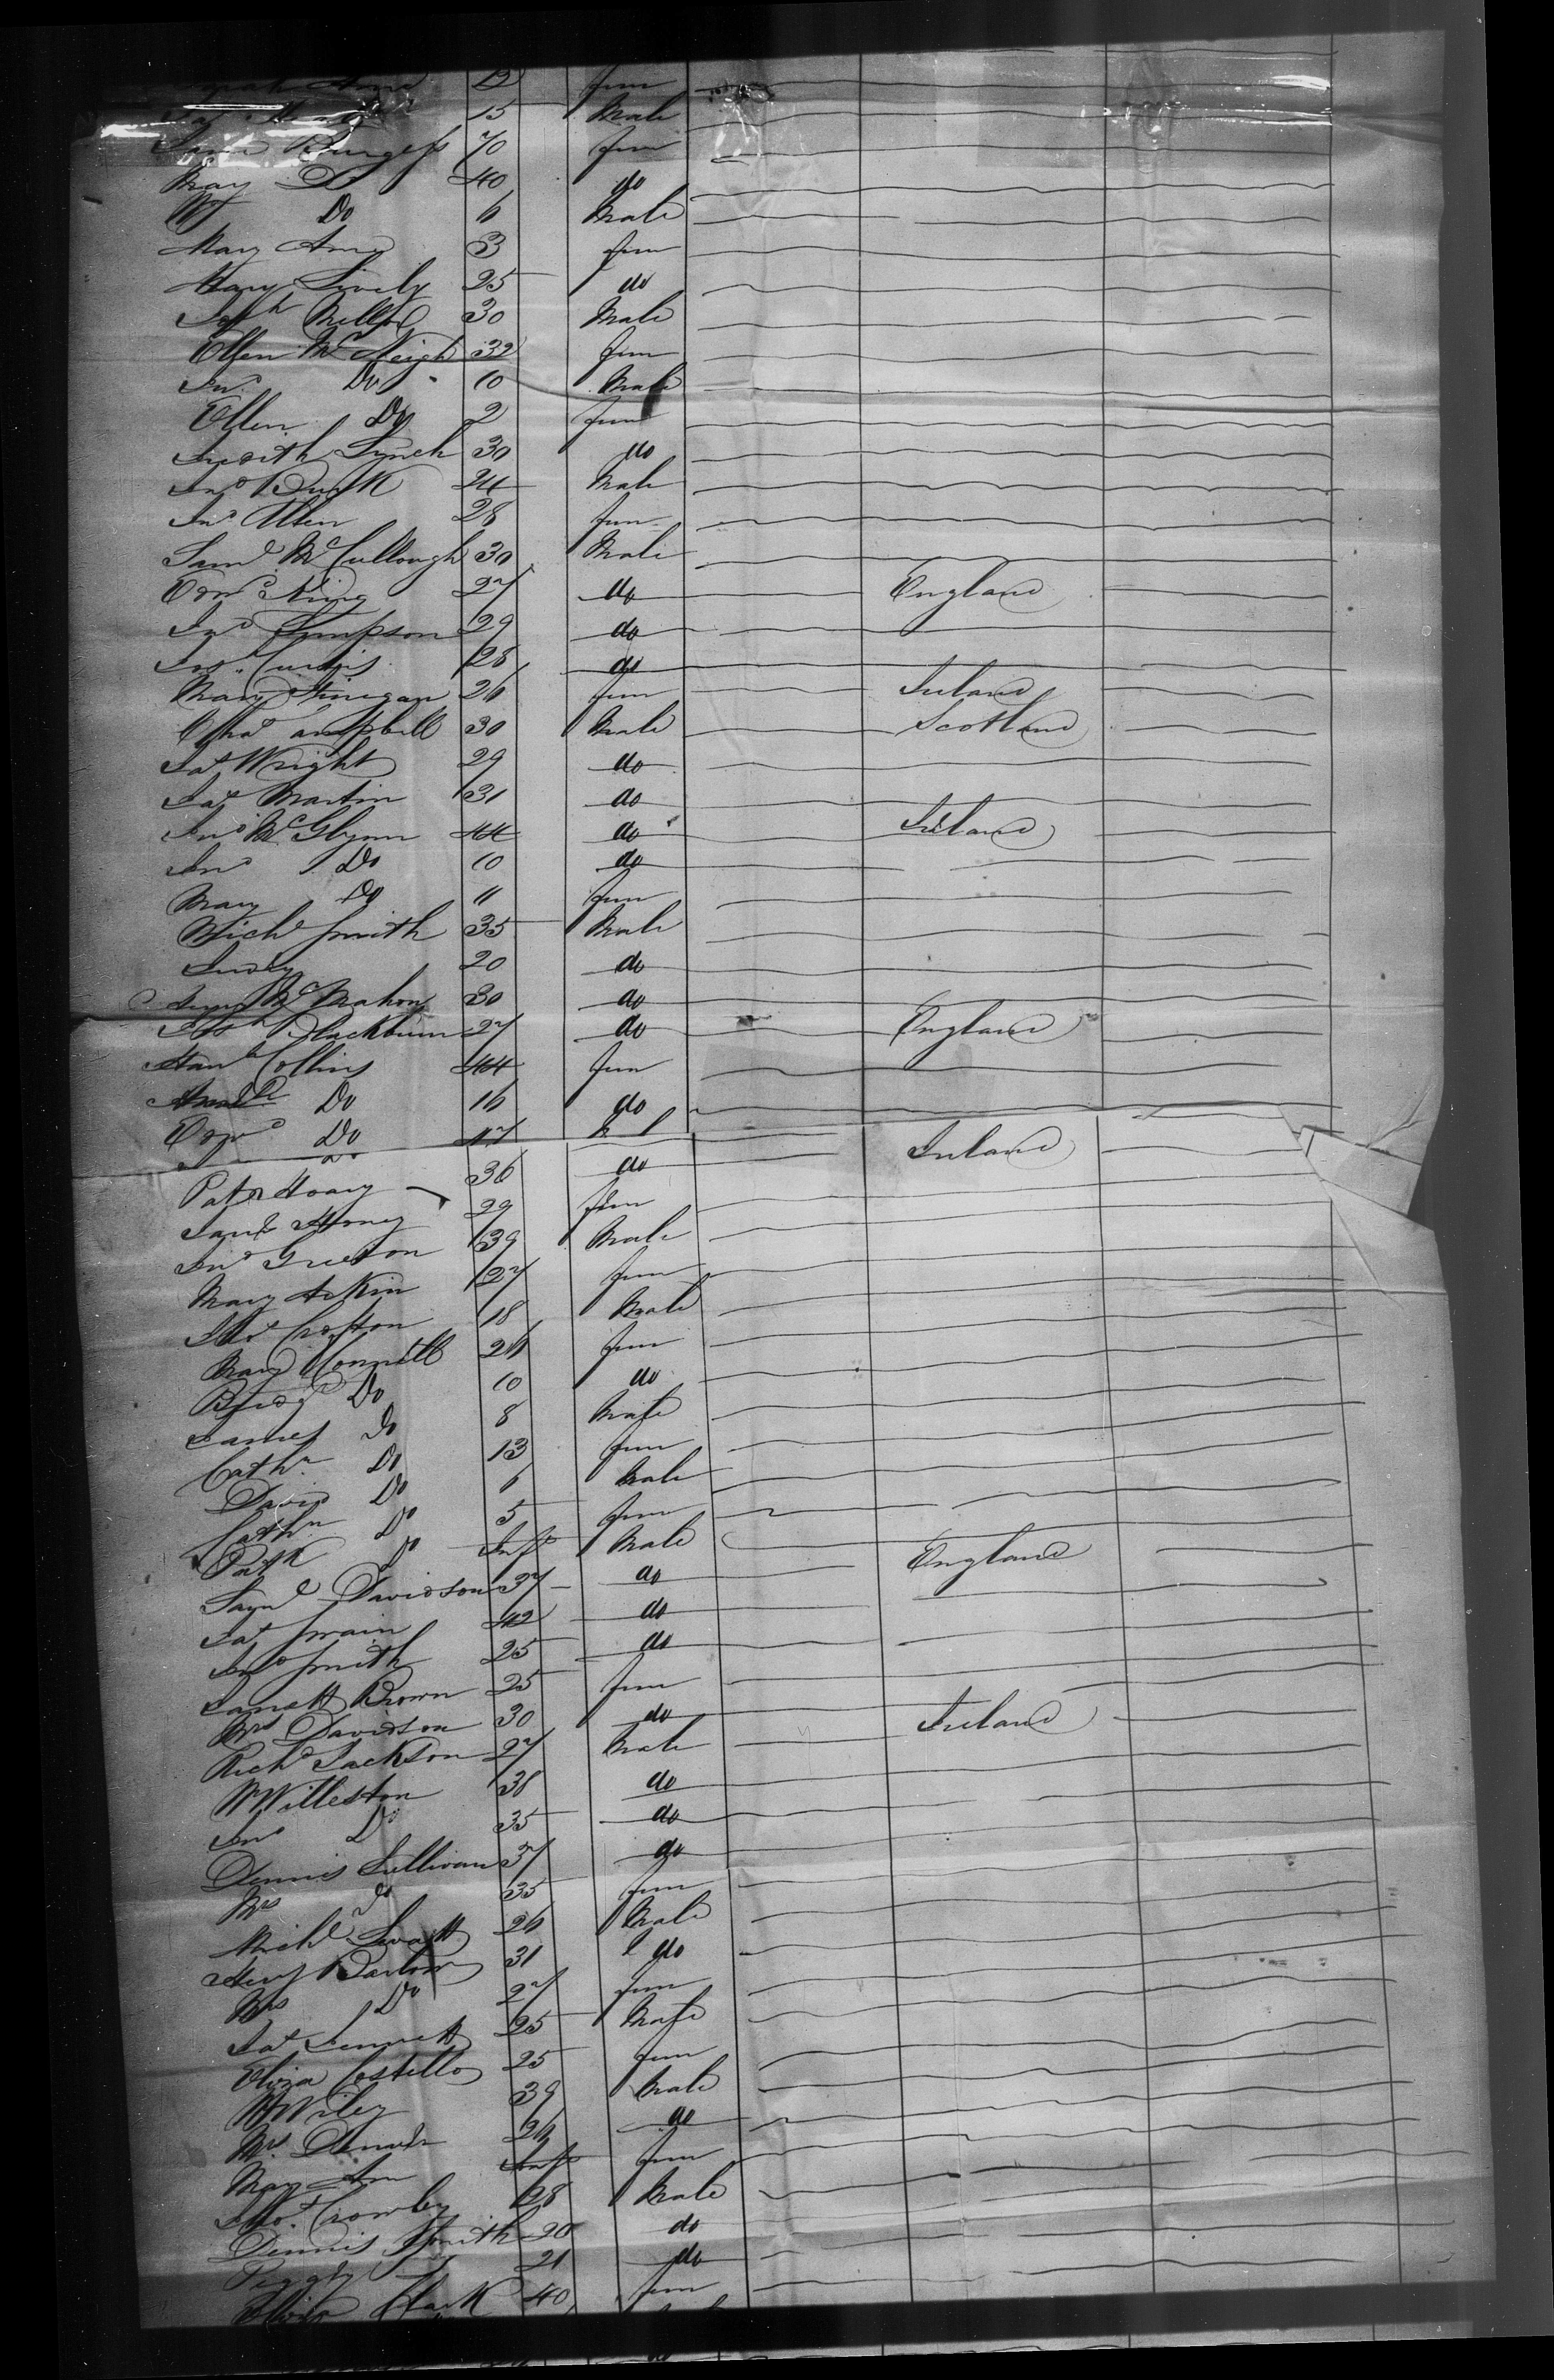 12 fem
Jas 15 Male
Jane Burgess 70 fem
Mary Do 40 do
Wm Do 6 Male
Mary Ann 3 fem
Mary Lively 25 do
Josh 30 Male
Ellen McNeigh 32 fem
Jno Do 10 Male
Ellen Do 2 fem
Judith Lynch 30 do
Jno Burk 24 Male
Jno Allen 28 fem
Saml McCullough 30 Male
Edwd King 27 do England
Jno Simpson 29 do
Jos Curtis 28 do
Mary Finegan 26 fem Ireland
Chas Campbell 30 Male Scotland
Jas Wright 29 do
Jas Martin 31 do
Jno McGlynn 44 do Ireland
Jno Do 10 do
Mary Do 11 fem
Michl Smith 35 Male
Judy 20 do
McMahon 30 do
Blackburn 27 do England
Hanh Collins 44 fem
Do 16 do
Edwd Do 17
Do Ireland
Patk Hoary 36 do
Hoary 29 fem
Jno 39 Male
Mary Askin 27 fem
Thos Crofton 18 Male
Mary Connell 26 fem
Bridgt Do 10 do
James Do 8 Male
Cathn Do 13 fem
David Do 6 Male
Cathn Do 5 fem
Patk Do Inft Male
Saml Davidson 37 do England
Jas Swain 42 do
Jno Smith 25 do
Janett Brown 25 fem
Mrs Davidson 30 do Ireland
Richd Jackson 27 Male
W Willeston 38 do
Jno Do 35 do
Dennis Sullivan 37 do
Mrs Do 35 fem
Michl 26 Male
Heny Barlow 31 do
Mrs Do 27 fem
Jas 25 Male
Eliza Costello 25 fem
W Wiley 39 Male
Mrs 26 do
Mary Ann Inft fem
Thos Crowley 28 Male
Dennis Smith 20 do
Peggy 21 do
Eliza Clark 40 fem